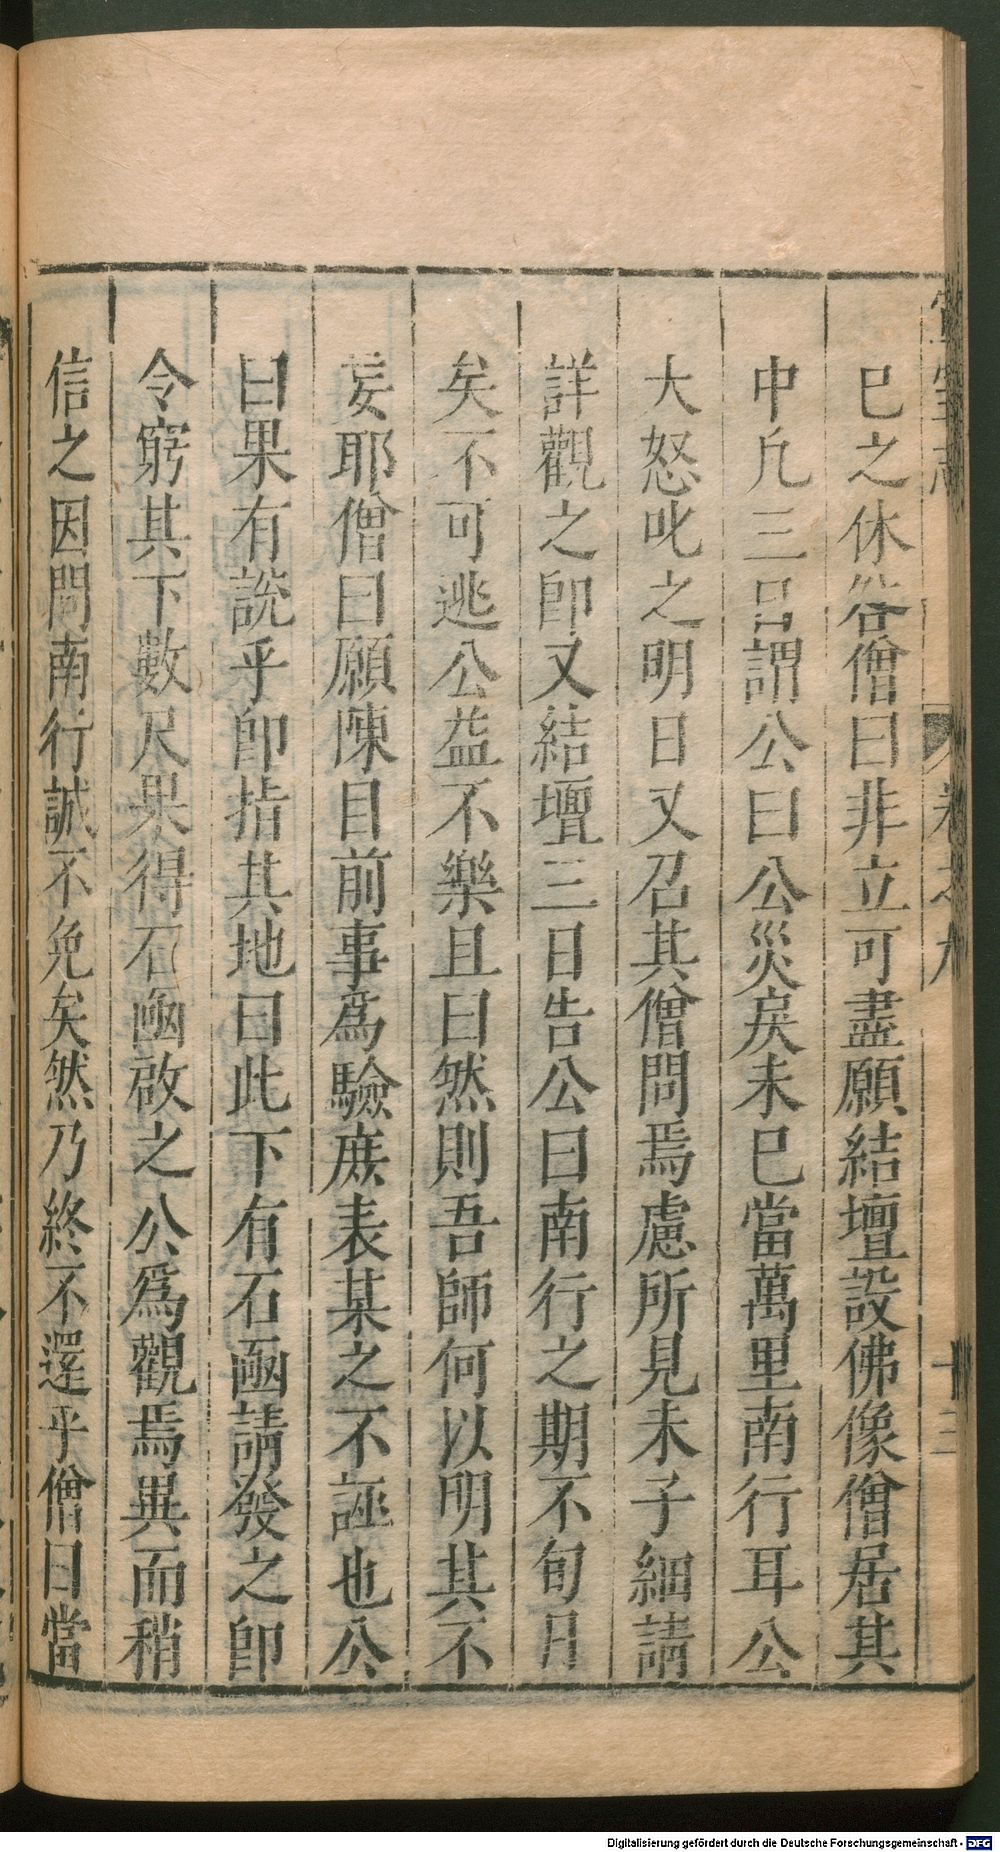 宣室志 卷之九 十三
已之休咎僧曰非立可盡願結壇設佛像僧居其
中凡三日謂公曰公災戾未已當萬里南行耳公
大怒叱之明日又召其僧問焉慮所見未子細請
詳觀之即又結壇三日告公曰南行之期不旬月
矣不可逃公益不樂且曰然則吾師何以明其不
妄耶僧曰願陳目前事爲驗庶表某之不誣也公
曰果有說乎即指其地曰此下有石凾請發之即
令窮其下數尺果得石凾啟之公爲觀焉異而稍
信之因問南行誠不免矣然乃終不還乎僧曰當
Digitalisierung gefördert durch die Deutsche Forschungsgemeinschaft - DFG